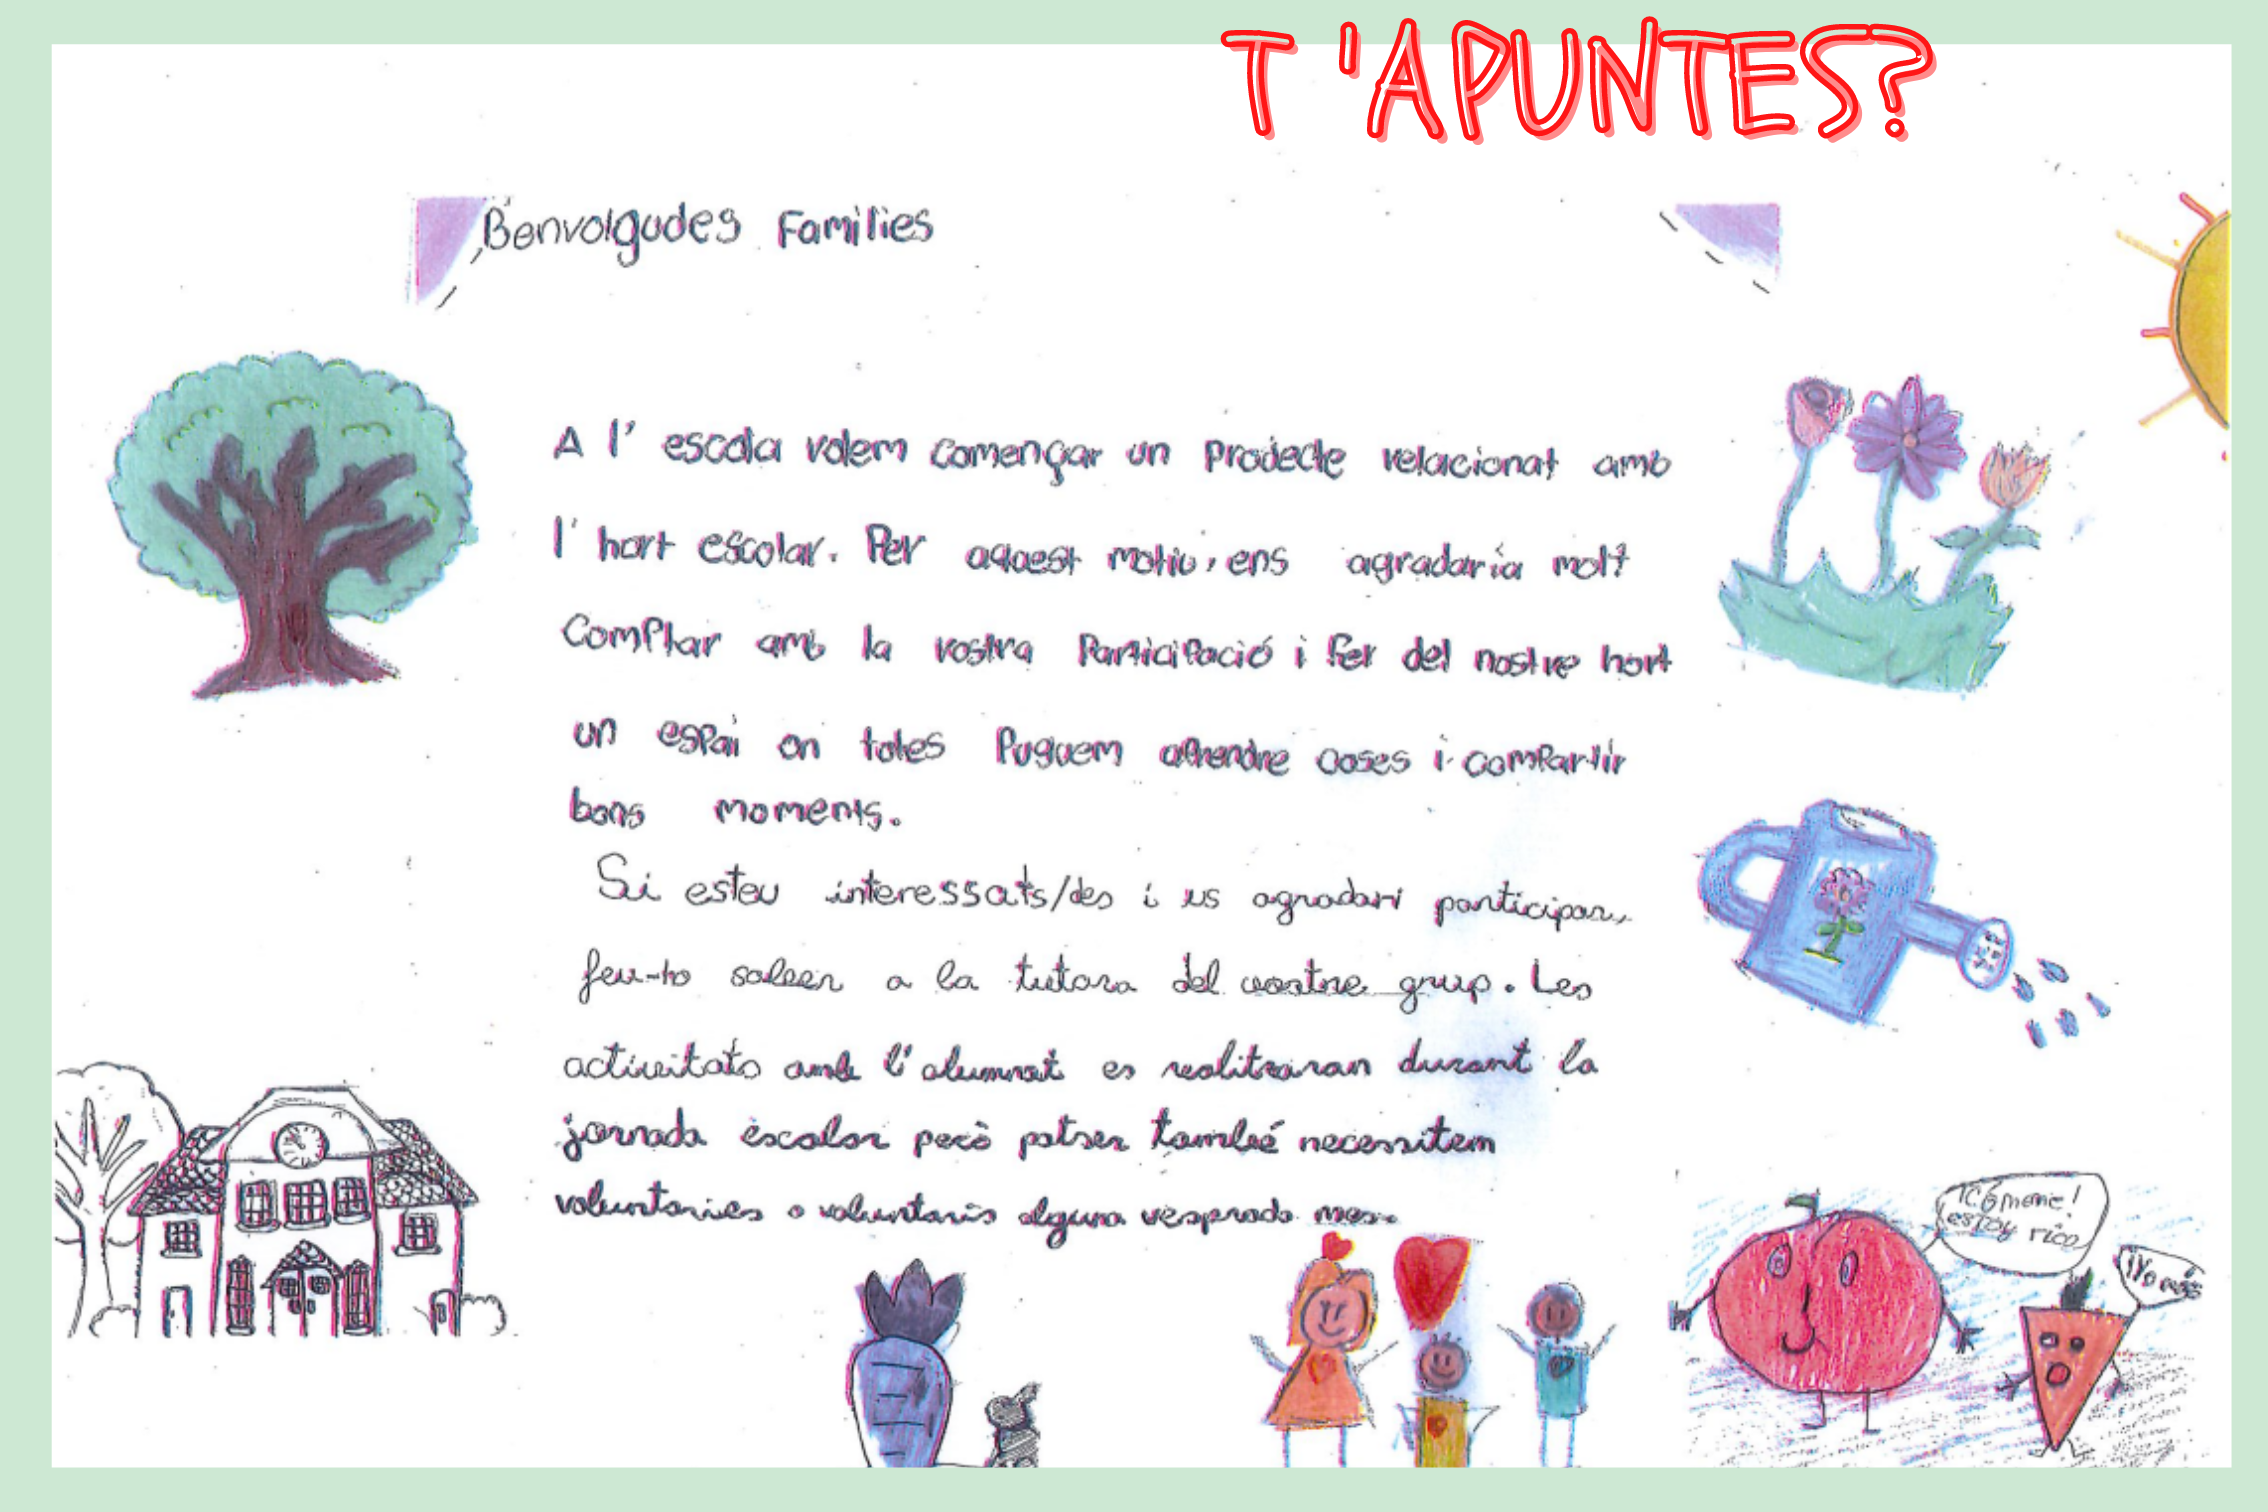 T 'APUNTES?
Benvolgudes Famílies
A l' escola volem començar un Projecte relacionat amb
l' hort escolar. Per aquest motiu, ens agradaria molt
Comptar amb la vostra Participació i fer del nostre hort
un espai on totes Puguem aprendre coses i compartir
bons moments.
Si esteu interessats/des i us agradari participar,
feu-ho saber a la tutora del vostre grup. Les
activitats amb l'alumnat es realitzaran durant la
jornada escolar però potser també necessitem
voluntaries o voluntaris alguna vesprada mes.
¡Cómeme!
estoy rico
¡Yo más